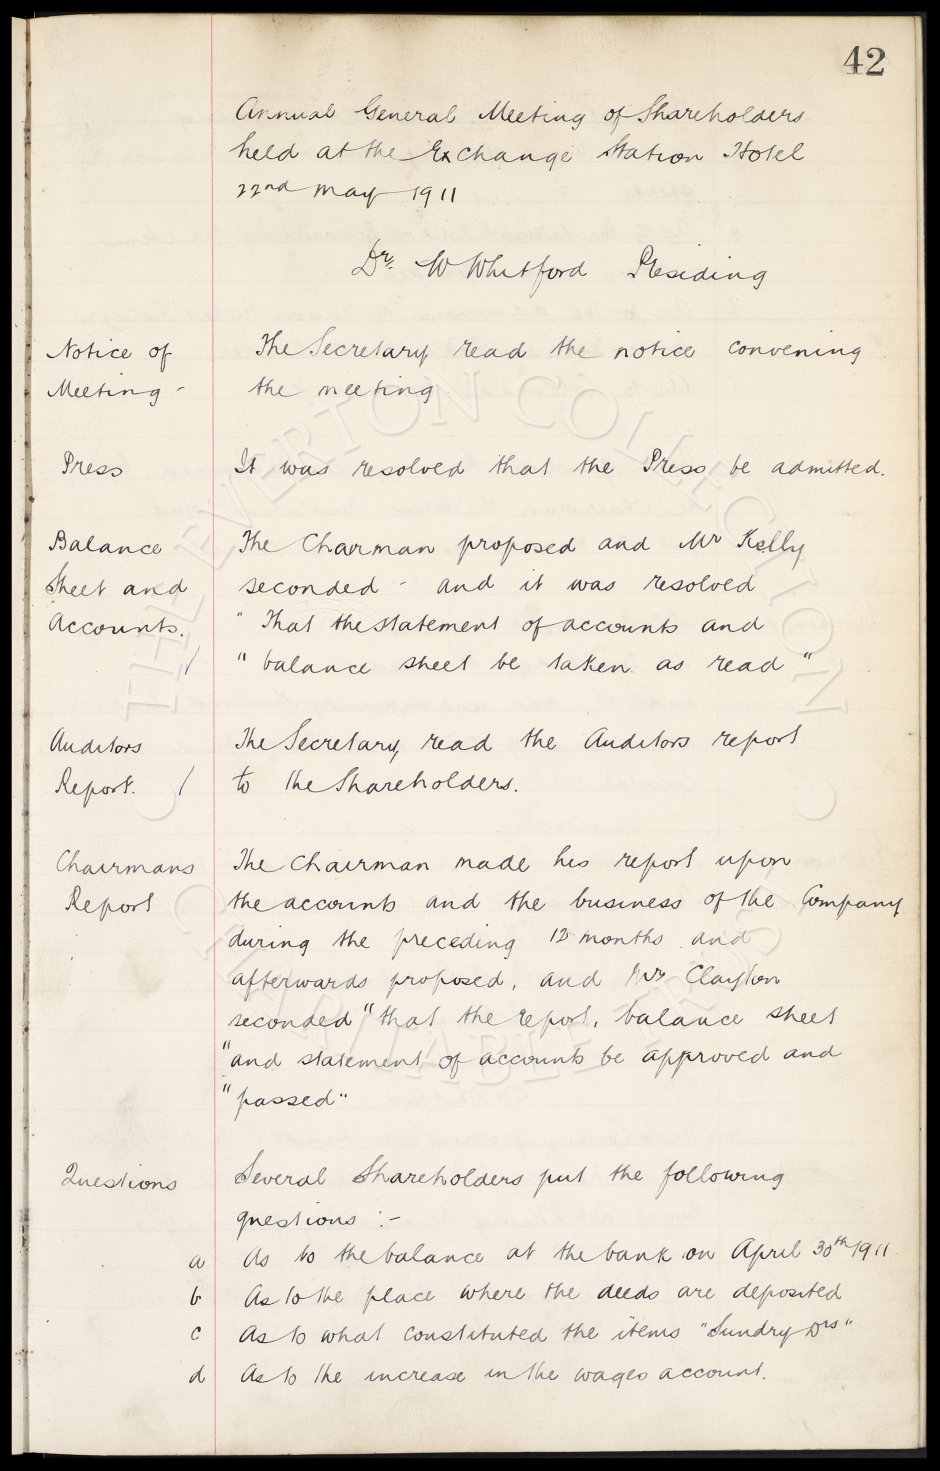 42
Annual General Meeting of Shareholders
held at the Exchange Station Hotel
22nd May 1911
Dr. W Whitford Presiding
Notice of Meeting -
The Secretary read the notice convening
the meeting
Press
It was resolved that the Press be admitted.
Balance Sheet and Accounts.
The Chairman proposed and Mr Kelly
seconded - and it was resolved
" That the statement of accounts and
" balance sheet be taken as read "
Auditors Report.
The Secretary read the Auditors report
to the Shareholders.
Chairmans Report
The Chairman made his report upon
the accounts and the business of the Company
during the preceding 12 months and
afterwards proposed, and Mr Clayton
seconded "that the report, balance sheet
"and statement of accounts be approved and
"passed"
Questions
Several Shareholders put the following
questions :-
a As to the balance at the bank on April 30th 1911
b As to the place where the deeds are deposited
c As to what constituted the items "Sundry Drs"
d As to the increase in the wages account.
THE EVERTON COLLECTION